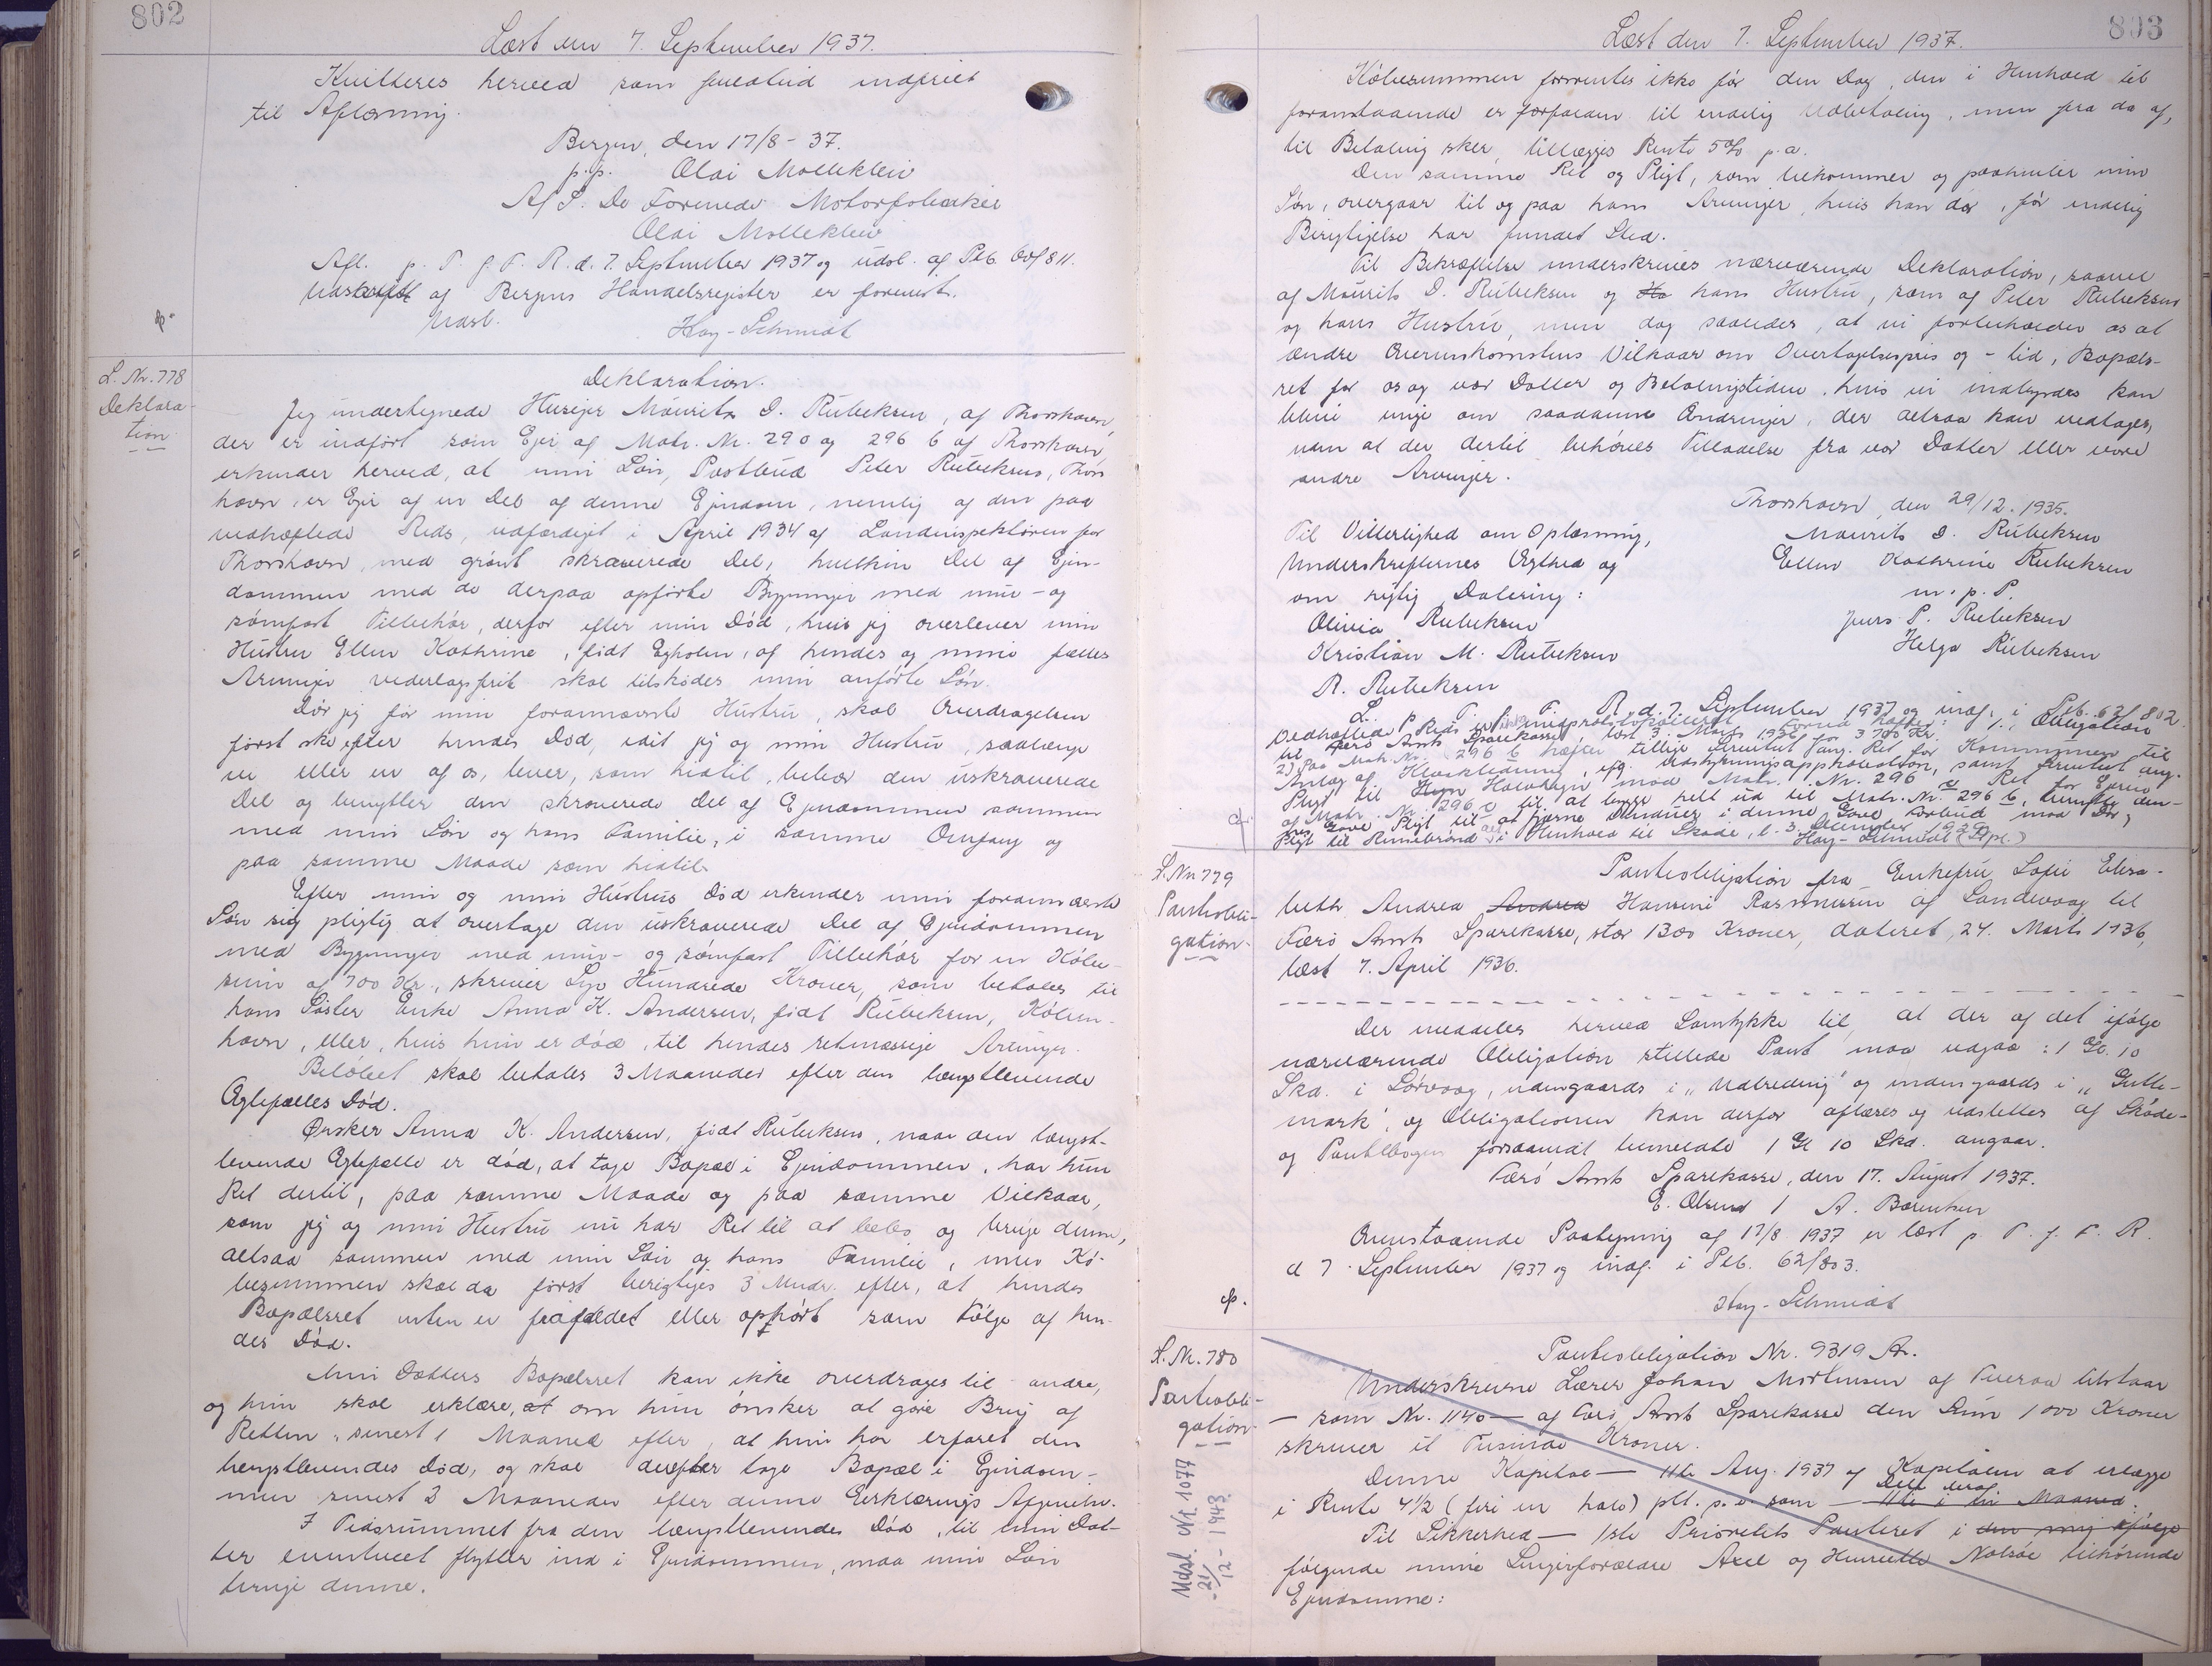 802
Læst den 7. September 1937.
Kvitteres herved som fuldtud indfriet
til Aflæsning.
Bergen, den 17/8 - 37.
p.p. Olai Mollekleiv
A/S. De Forenede Motorfabrikker
Olai Mollekleiv
Afl. p. T. f. F. R. d. 7. September 1937 og udsl. af Ptb.
Udskrift af Bergens Handelsregister er forevist.
Udsl. Hay-Schmidt
L. Nr. 778
Deklara-
tion.
Deklaration.
Jeg undertegnede Husejer Mourits D. Rubeksen, af Thorshavn,
der er indført som Ejer af Matr. Nr. 290 og 296 b af Thorshavn,
erkender herved, at min Søn, Postbud Peter Rubeksen, Thors
havn, er Ejer af en Del af denne Ejendom, nemlig af den paa
vedhæftede Rids, udfærdiget i April 1934 af Landinspektøren for
Thorshavn, med grønt skraverede Del, hvilken Del af Ejen-
dommen med de derpaa opførte Bygninger med mur- og
sømfast Tilbehør, derfor efter min Død, hvis jeg overlever min
Hustru Ellen Kathrine, født Egholm, af hendes og mine fælles
Arvinger vederlagsfrit skal tilskødes min anførte Søn.
Dør jeg før min forannævnte Hustru, skal Overdragelsen
først ske efter hendes Død, idet jeg og min Hustru, saalænge
vi eller en af os, lever, som hidtil, bebor den uskraverede
Del og benytter den skraverede Del af Ejendommen sammen
med min Søn og hans Familie, i samme Omfang og
paa samme Maade som hidtil.
Efter min og min Hustrus Død erkender min forannævnte
Søn sig pligtig at overtage den uskraverede Del af Ejendommen
med Bygninger med mur- og sømfast Tilbehør for en Købe-
sum af 700 Kr., skriver Syv Hundrede Kroner, som betales til
hans Søster Enke Anna K. Andersen, født Rubeksen, Køben-
havn, eller, hvis hun er død, til hendes retmæssige Arvinger.
Beløbet skal betales 3 Maaneder efter den længstlevende
Ægtefælles Død.
Ønsker Anna K. Andersen, født Rubeksen, naar den længst-
levende Ægtefælle er død, at tage Bopæl i Ejendommen, har hun
Ret dertil, paa samme Maade og paa samme Vilkaar,
som jeg og min Hustru nu har Ret til at bebo og bruge denne,
altsaa sammen med min Søn og hans Familie, men Kø-
besummen skal da først berigtiges 3 Mndr. efter, at hendes
Bopælsret enten er frafaldet eller ophørt som Følge af hen-
des Død.
Min Datters Bopælsret kan ikke overdrages til andre,
og hun skal erklære, at om hun ønsker at gøre Brug af
Retten, senest 1 Maaned efter, at hun har erfaret den
længstlevendes Død, og skal derefter tage Bopæl i Ejendom-
men senest 3 Maaneder efter denne Erklærings Afgivelse.
I Tidsrummet fra den længstlevendes Død, til min Dat-
ter eventuelt flytter ind i Ejendommen, maa min Søn
bruge denne.
803
Læst den 7. September 1937.
Købesummen forrentes ikke før den Dag, den i Henhold til
foranstaaende er forfalden til endelig Udbetaling, men fra da af,
til Betaling sker, tillægges Rente 5% p.a.
Den samme Ret og Pligt, som tilkommer og paahviler min
Søn, overgaar til og paa hans Arvinger, hvis han dør, før endelig
Berigtigelse har fundet Sted.
Til Bekræftelse underskrives nærværende Deklaration, saavel
af Mourits D. Rubeksen og Ha hans Hustru, som af Peter Rubeksen
og hans Hustru, men dog saaledes, at vi forbeholder os at
ændre Overenskomstens Vilkaar om Overtagelsespris og -tid, Bopæls-
ret for os og vor Datter og Betalingstiden, hvis vi indbyrdes kan
blive enige om saadanne Ændringer, der altsaa kan vedtages,
uden at der dertil behøves Tilladelse fra vor Datter eller vore
andre Arvinger.
Thorshavn, den 29/12. 1935.
Til Vitterlighed om Oplæsning,
Underskrifternes Ægthed og
om rigtig Datering:
Olivia Rubeksen
Kristian M. Rubeksen
R. Rubeksen
Mourits D. Rubeksen
Ellen Kathrine Rubeksen
m. p. P.
Jens P. Rubeksen
Helga Rubeksen
L. p. T. f. F. R. d. 7. September 1937 og indf. i Ptb. 62/802.
Vedhæftede Rids er ikke medprotokolleret. Forud hæfter: 1. Obligation
til Færø Amts Sparekasse, læst 3. Marts 1926 for 3700 Kr.
2) Paa Matr. Nr. 296 b hæfter tillige Servitut ang. Ret for Kommunen til
Anlæg af Kloakledning, ifg. Udstykningsapprobation, samt Servitut ang.
Pligt til Hegn Halvhegn mod Matr. Nr. 296 a Ret for Ejeren
af Matr. Nr. 296 c til at bygge helt ud til Matr. Nr. 296 b,
Pligt til at fjerne Vinduer i denne Gavl Forbud mod Dør,
Pligt til Rendebrønd alt i Henhold til Skøde, l. 3. December 1929
Hay-Schmidt
L. Nr. 779
Pantobli-
gation.
Pantobligation fra Enkefru Sofie Elisa-
beth Andrea Andrea Hansine Rasmussen af Sandevaag til
Færø Amts Sparekasse, stor 1300 Kroner, dateret 24. Marts 1936,
læst 7. April 1936.
Der meddeles herved Samtykke til, at der af det ifølge
nærværende Obligation stillede Pant maa udgaa: 1 Gl. 10
Skd. i Sørvaag, udengaards i „Udbreding" og indengaards i „Gulle-
mark", og Obligationen kan derfor aflæses og udslettes af Skøde-
og Pantebogen forsaavidt bemeldte 1 Gl 10 Skd. angaar.
Færø Amts Sparekasse, den 17. August 1937.
E. Olsen / A. Bærentsen
Ovenstaaende Paategning af 17/8 1937 er læst p. T. f. F. R.
d. 7. September 1937 og indf. i Ptb. 62/803.
Hay-Schmidt
L. Nr. 780
Pantobli-
gation.
Udsl. Nr. 1077
21/12 - 1943.
Pantobligation Nr. 9319 A.
Underskrevne Lærer Johan Mortensen af Tveraa tilstaar
— som Nr. 1140 — af Færø Amts Sparekasse den Sum 1000 Kroner
skriver et Tusinde Kroner.
Denne Kapital — 11te Aug. 1937 af Kapitalen at erlægge
i Rente 4½ (fire en halv) pCt. p. a. som — 11te i en Maaned.
Til Sikkerhed — 1ste Prioritets Panteret i den mig ifølge
følgende mine Svigerforældre Axel og Henriette Nolsøe tilhørende
Ejendomme: